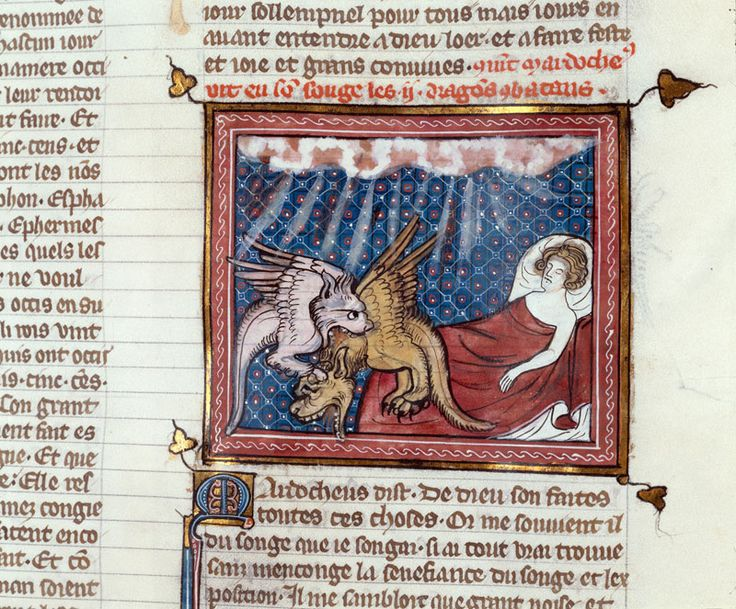 enommee de
hascun iour
maniere occi
leur rencon
it faire. Et
cens. et
ont les nõs
phon. Espha
. Ephermes
es quels les
r ne voul
s occis en su
li rois vint
quis ont occis
is. cinc. cẽs.
Con grant
ment fait es
gne. Et que
e. Elle res
nnez congie
facent enco
fait. Et cõ
man soient
iour sollempnel pour tous mais iours en
auant entendre a dieu loer. et a faire feste
et ioie et grans conuiues. qñt mardocheꝰ
vit en sõ songe les .ij. dragõs ꝯbatans.
Mardocheus dist. De dieu son faites
toutes ces choses. Or me souuent il
du songe que ie songai. si ai tout vrai trouue
sanz mençonge la senefiance du songe et lex
position. Il me sambloit que grant noise et